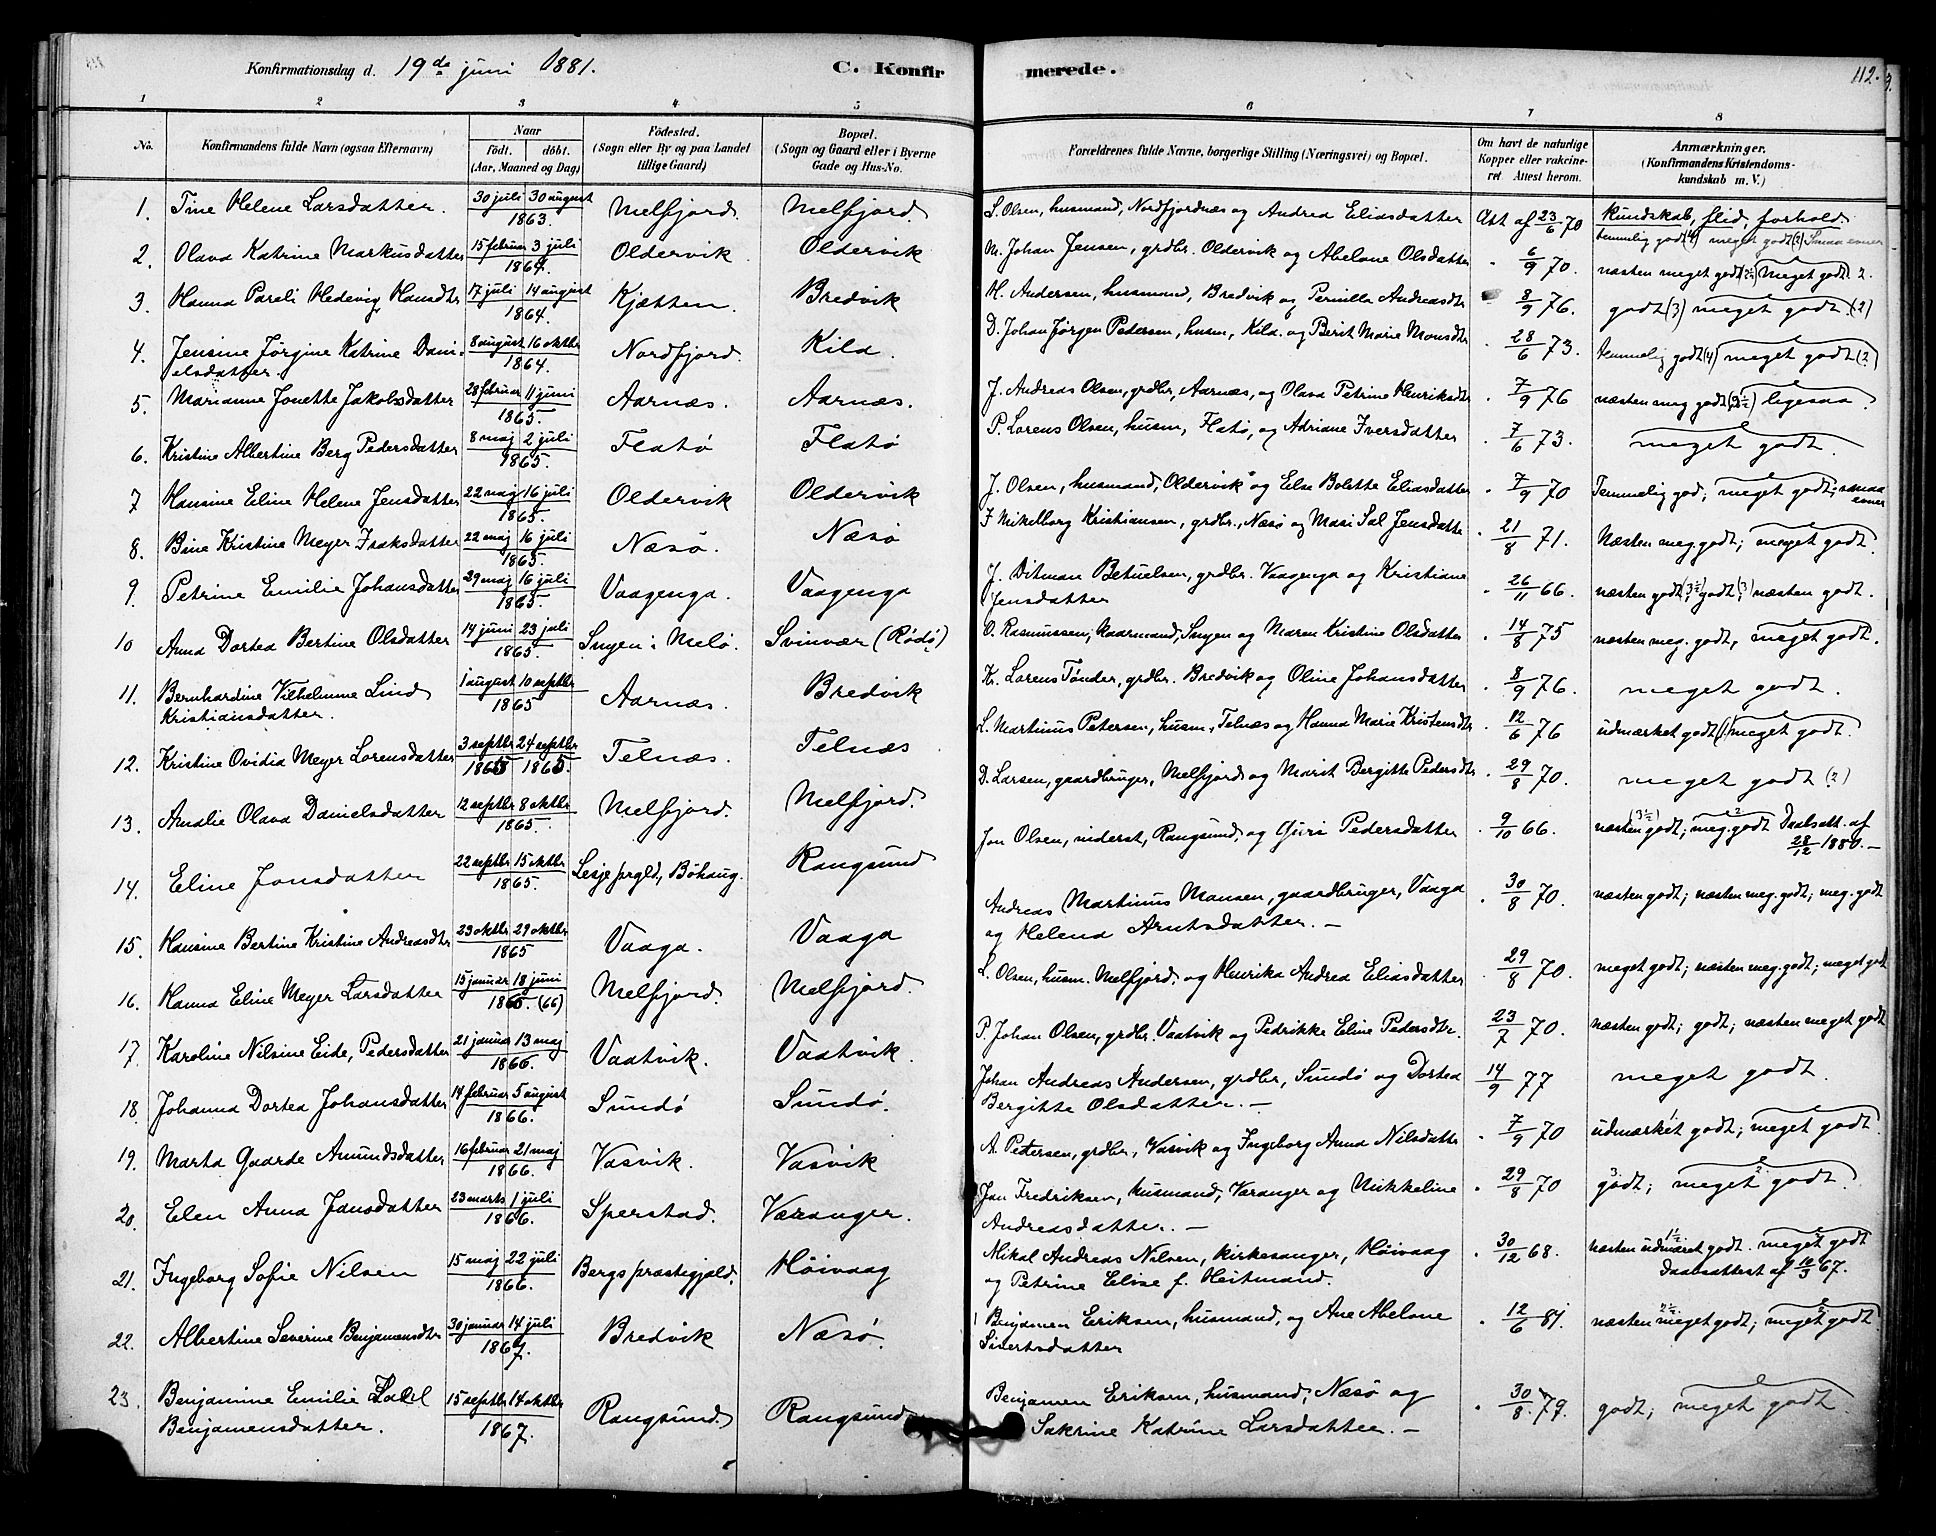 Konfirmationsdag d. 19de juni 1881.
C. Konfir merede.
112.
1 2 3 4 5 6 7 8
No.
Konfirmandens fulde Navn (ogsaa Efternavn)
Naar
födt. döbt.
(Aar, Maaned og Dag)
Födested.
(Sogn eller By og paa Landet
tillige Gaard)
Bopæl.
(Sogn og Gaard eller i Byerne
Gade og Hus-No.
Forældrenes fulde Navne, borgerlige Stilling (Næringsvei) og Bopæl.
Om havt de naturlige
Kopper eller vakcine-
ret Attest herom.
Anmærkninger.
(Konfirmandens Kristendoms-
kundskab m. V.)
1. Tine Helene Larsdatter. 30 juli 30 august 1863. Melfjord. Melfjord L. Olsen, husmand, Nordfjordnæs og Andrea Eliasdatter Att af 23/6 70 kundskab, flid, forhold
temmelig godt (4) meget godt (2) Smaa evner
2. Olava Katrine Markusdatter 15 februar 3 juli 1864. Oldervik Oldervik M. Johan Jensen, grdbr. Oldervik og Abelone Olsdatter " 6/9 70. næsten meget godt (2½) meget godt 2.
3. Hanna Pareli Hedevig Hansdtr 17 juli 14 august 1864. Kjætten. Bredvik H. Andersen, husmand, Bredvik og Pernilla Andreasdtr " 8/9 76. godt (3) meget godt. (2)
4. Jensine Jørgine Katrine Dani-
elsdatter. 8 august 16 oktbr 1864. Nordfjord. Kila. D. Johan Jørgen Pedersen, husm, Kila. og Berit Marie Monsdtr " 28/6 73. temmelig godt (4) meget godt (2)
5. Marianne Jonette Jakobsdatter 28 februar 11 juni 1865. Aarnæs. Aarnæs. J. Andreas Olsen, grdbr, Aarnæs, og Olava Petrine Henriksdtr " 7/9 76 næsten meg godt (2½) ligesaa.
6. Kristine Albertine Berg Pedersdatter 8 maj 2 juli 1865. Flatø Flatø P. Lorens Olsen, husm, Flatø, og Adriane Iversdatter " 7/6 73. meget godt.
7 Hansine Eline Helene Jensdatter 22 maj 16 juli 1865. Oldervik Oldervik J. Olsen, husmand, Oldervik og Else Bolette Eliasdatter " 7/9 70 Temmelig god; meget godt; smaa
evner
8. Bine Kristine Meyer Isaksdatter 22 maj 16 juli 1865. Næsø. Næsø I Mikelborg Kristiansen, grdbr., Næsø og Mari Sal Jensdatte " 21/8 71. Næsten meg. godt; meget godt.
9. Petrine Emilie Johansdatter 29 maj 16 juli 1865. Vaagenga. Vaagenga J. Ditman Betuelsen, grdbr. Vaagenga og Kristiane
Jensdatter " 26/11 66. næsten godt (3½) godt; (3) næsten godt.
10 Anna Dortea Bertine Olsdatter 14 juni 23 juli 1865. Snyen i Melø. Svinvær (Rødø) O. Rasmussen, kaarmand, Snyen og Maren Kristine Olsdatter " 14/8 75 næsten meg. godt, meget godt.
11. Bernhardine Vilhelmine Lind
Kristiansdatter. 1 august 10 septbr 1865 Aarnæs. Bredvik K. Lorens Tønder, grdbr. Bredvik og Oline Johansdatter " 8/9 76. meget godt.
12. Kristine Ovidia Meyer Lorensdatter 3 septbr 24 septbr 1865 1865. Telnæs. Telnæs L. Martinus Petersen, husm, Telnæs og Hanna Marie Kristensdtr " 12/6 76 udmærket godt (1) meget godt.
13. Amalie Olava Danielsdatter 12 septbr 8 oktbr 1865. Melfjord. Melfjord. D. Larsen, gaardbruger, Melfjord og Marit Bergitte Pedersdtr " 29/8 70. meget godt (2)
14. Eline Jonsdatter 22 septbr 15 oktbr 1865. Lesje prgld, Böhaug. Rangsund Jon Olsen, inderst, Rangsund, og Guri Pedersdatter " 9/10 66. næsten godt; (3½) meg. godt 2 Daabsatt. af
28/12 1880. —
15. Hansine Bertine Kristine Andreasdtr 23 oktbr 29 oktbr 1865 Vaaga. Vaaga Andreas Martinus Monsen, gaardbruger, Vaaga
og Helena Arntsdatter. — " 30/8 70. næsten godt; næsten meg. godt; meg. godt
16. Hanna Eline Meyer Larsdatter 15 januar 18 juni 1865. (66) Melfjord. Melfjord L. Olsen, husm. Melfjord, og Henrika Andrea Eliasdatter " 29/8 70. meget godt; næsten meg. godt; meget godt
17. Karoline Nilsine Eide, Pedersdatter 21 januar 13 maj 1866. Vaatvik. Vaatvik. P. Johan Olsen, grdbr. Vaatvik og Pedrikke Eline Pedersdtr. " 23/7 70. næsten godt; godt; næsten meget godt
18. Johanna Dortea Johansdatter 14 februar 5 august 1866. Sundø Sundø. Johan Andreas Andersen, grdbr, Sundø og Dortea
Bergitte Olsdatter. — 14/9 77 meget godt.
19. Marta Gaarde Amundsdatter 16 februar 21 maj 1866. Vasvik. Vasvik A. Petersen, grdbr, Vasvik og Ingeborg Anna Nilsdatte " 7/9 70 udmærket godt; meget godt
20. Elen Anna Jansdatter 23 marts 1 juli 1866. Sperstad. Væranger. Jan Fredriksen, husmand, Væranger og Nikkeline
Andreasdatter. — " 29/8 70 3. godt; meget godt. 2
21. Ingeborg Sofie Nilsen 15 maj 22 juli 1866. Bergs præstegjæld. Höivaag Mikal Andreas Nilsen, kirkesanger, Höivaag
og Petrine Elise f. Heitmand. " 30/12 68. næsten udmærket godt. 1½ meget godt
Daabsattest af 10/3 67.
22. Albertine Severine Benjamensdtr 30 januar 14 juli 1867. Bredvik Næsø. Benjamen Eriksen, husmand, og Ane Abelone
Sivertsdatter " 12/6 81. næsten meget godt; 2½ meget godt
23. Benjamine Emilie
Benjamensdatter. 15 septbr 14 oktbr 1867. Rangsund. Rangsund Benjamen Eriksen, husmand, Næsø og
Sakrine Katrine Larsdatter. — " 30/8 79. godt; meget godt.